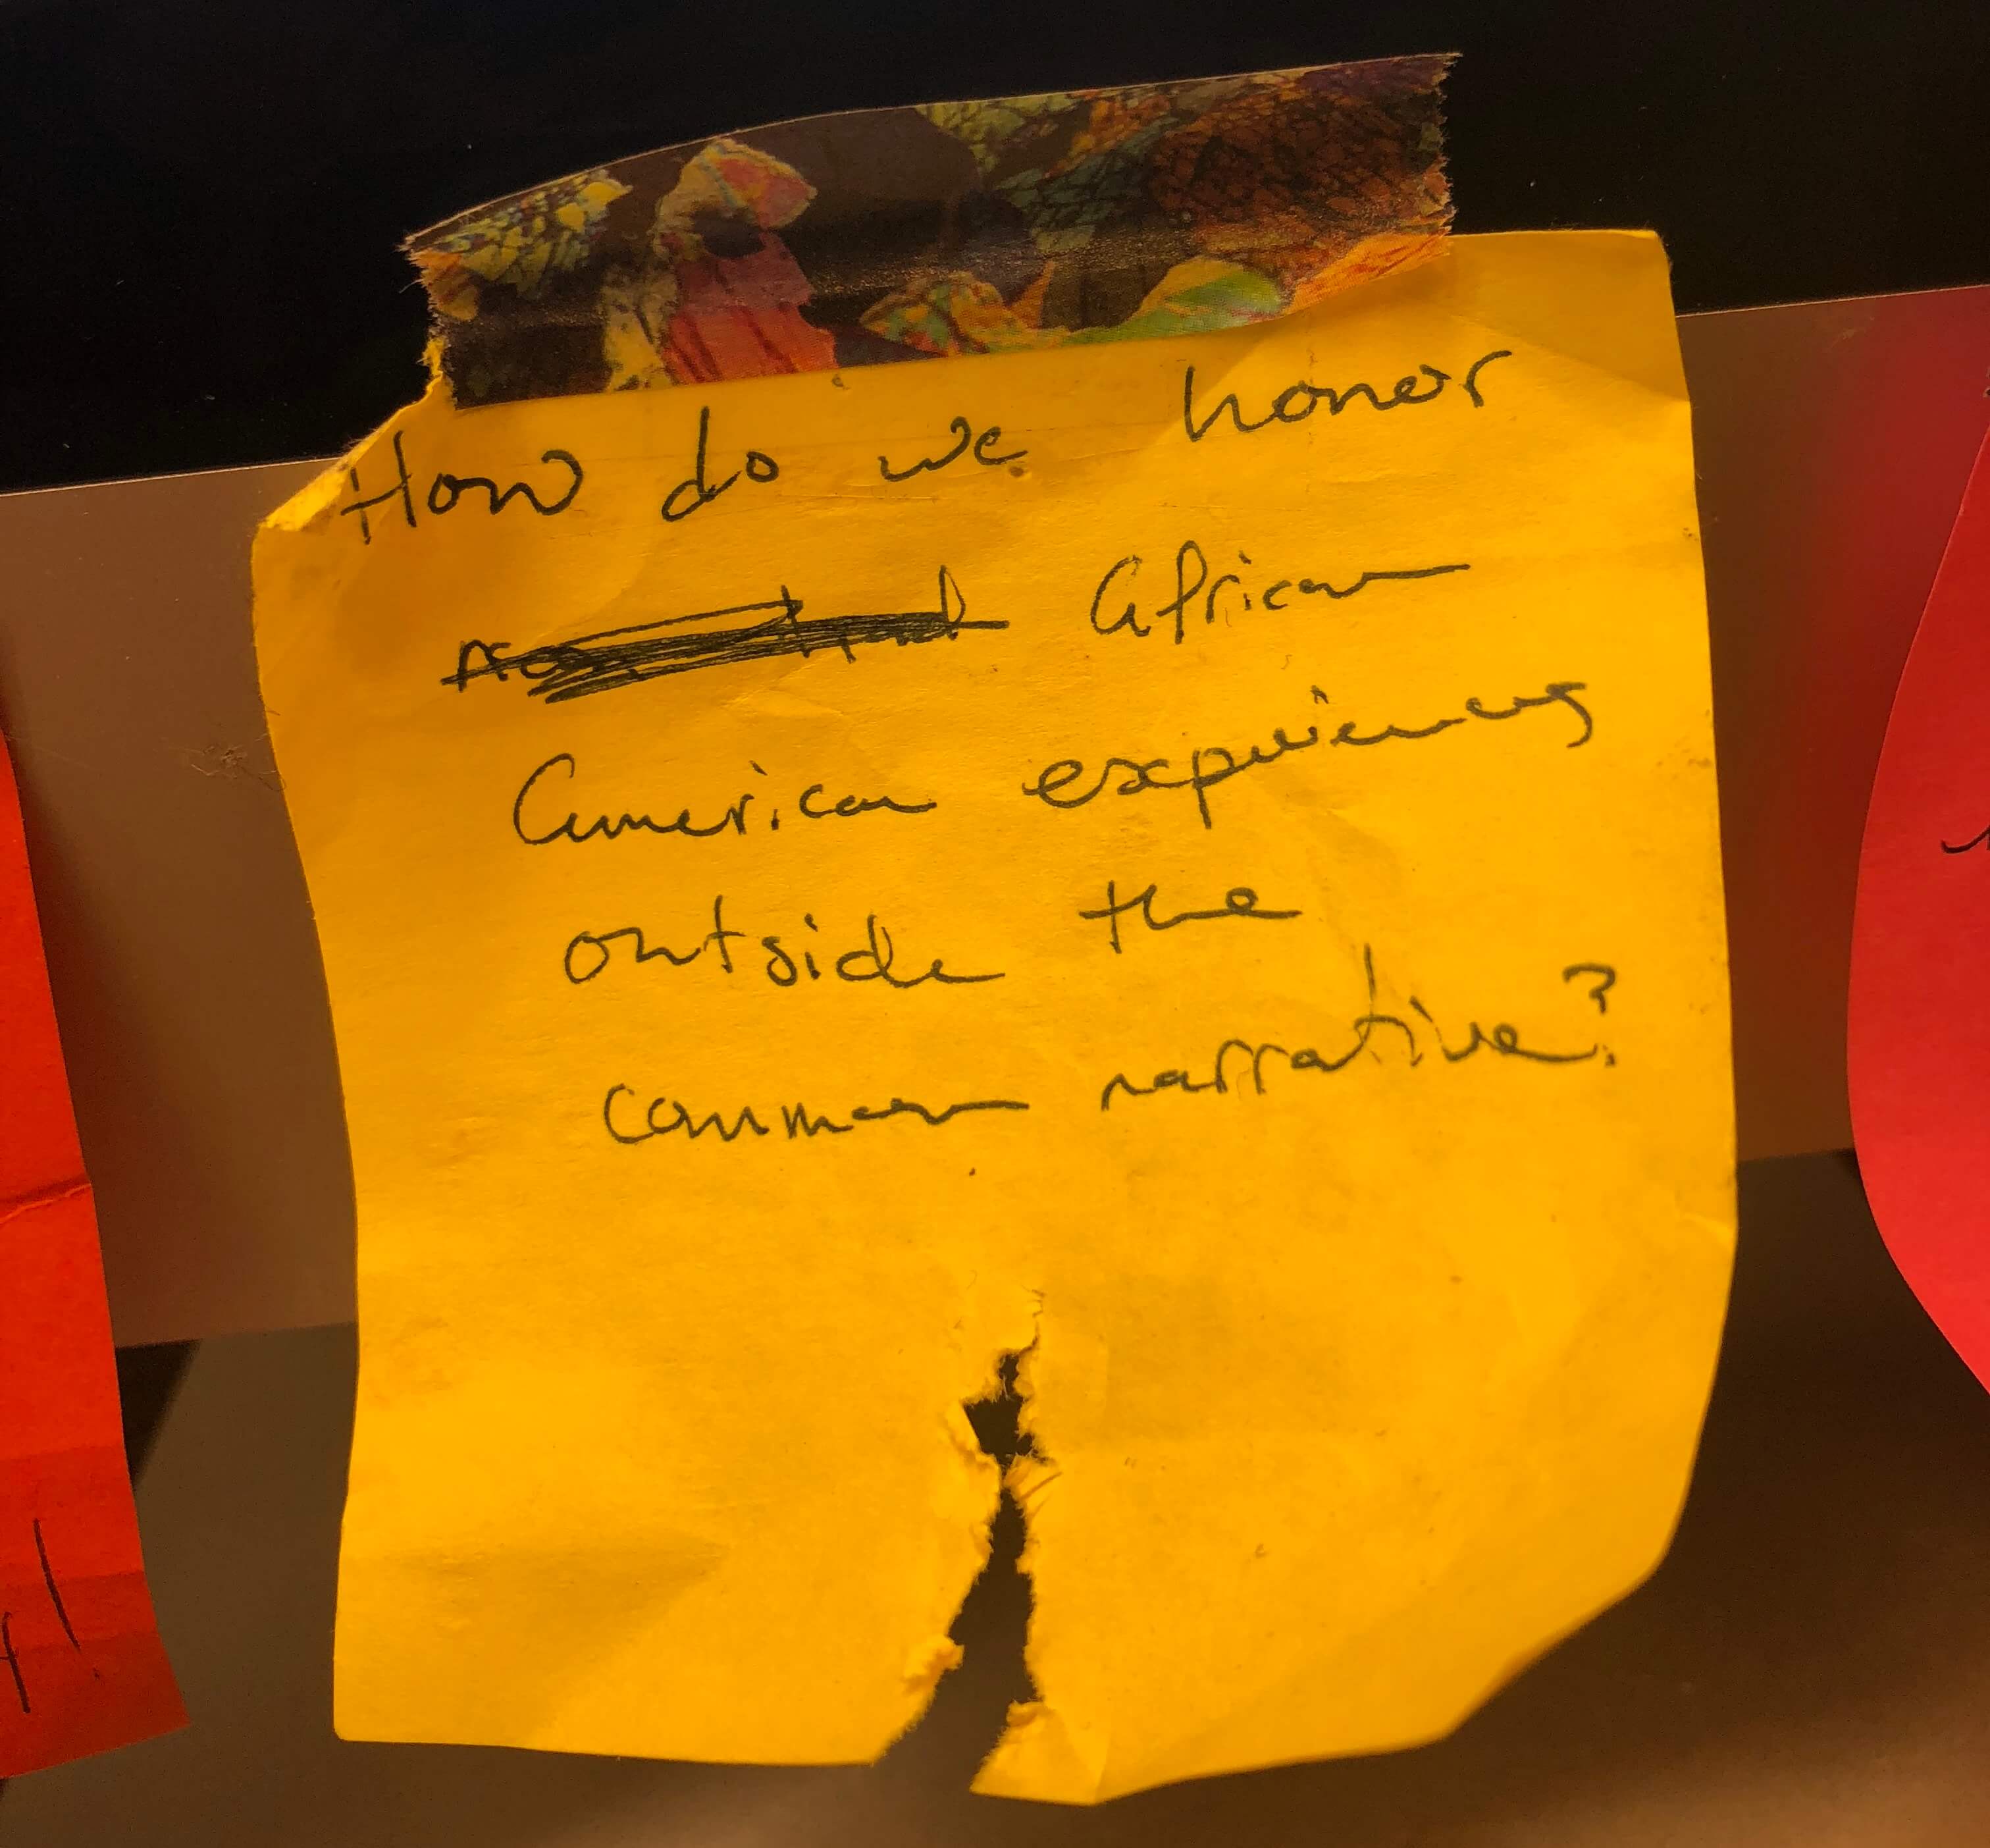 How do we honor
African
American experiences
outside the
common narrative?